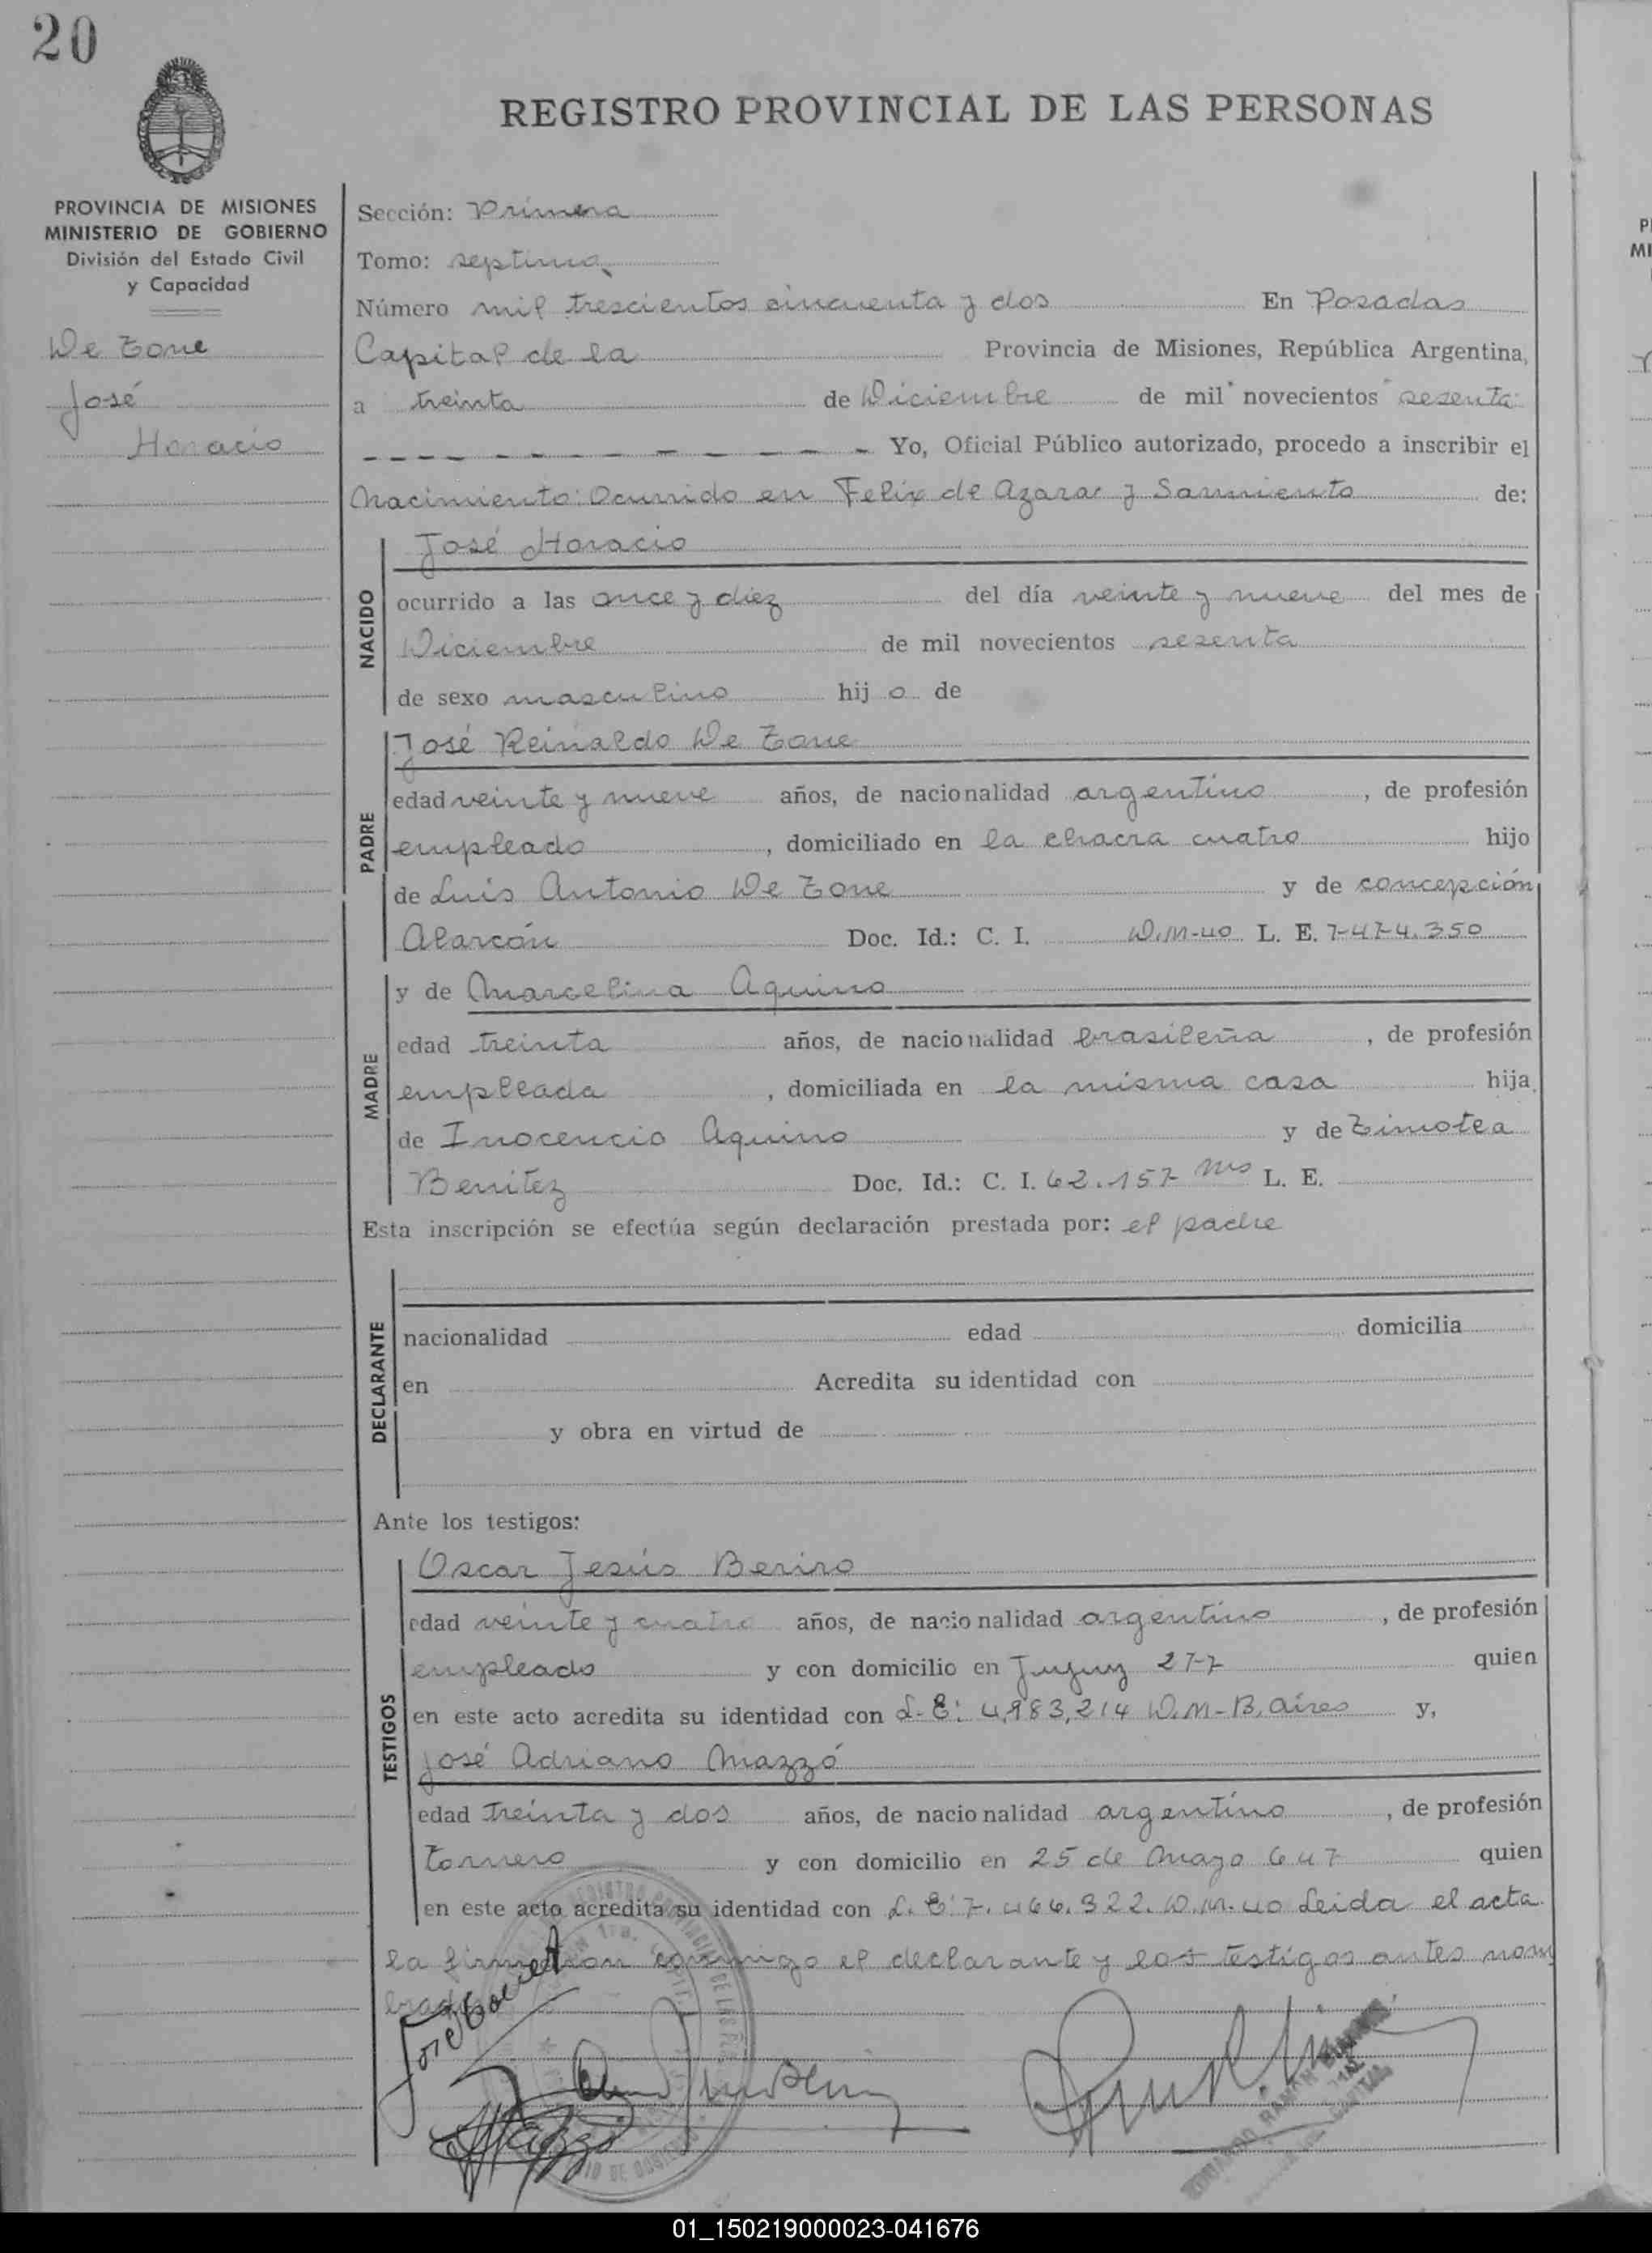 20
REGISTRO PROVINCIAL DE LAS PERSONAS
PROVINCIA DE MISIONES
MINISTERIO DE GOBIERNO
División del Estado Civil
y Capacidad
De Tone
José
Horacio
Sección: Primera
Tomo: septimo
Número mil trescientos cincuenta y dos En Posadas
Capital de la Provincia de Misiones, República Argentina,
a treinta de Diciembre de mil novecientos sesenta
- - - - - - - - - - - Yo, Oficial Público autorizado, procedo a inscribir el
Nacimiento: Ocurrido en Felix de Azara y Sarmiento de:
NACIDO
José Horacio
ocurrido a las once y diez del día veinte y nueve del mes de
Diciembre de mil novecientos sesenta
de sexo masculino hijo de
PADRE
José Reinaldo De Tone
edad veinte y nueve años, de nacionalidad argentino, de profesión
empleado, domiciliado en la chacra cuatro hijo
de Luis Antonio De Tone y de concepción
Alarcón Doc. Id.: C. I. D.M-40 L. E. 7.474.350
MADRE
y de Marcelina Aquino
edad treinta años, de nacionalidad brasileña, de profesión
empleada, domiciliada en la misma casa hija
de Inocencio Aquino y de Timotea
Benitez Doc. Id.: C. I. 62.157 Mns L. E.
Esta inscripción se efectúa según declaración prestada por: el padre
DECLARANTE
nacionalidad edad domicilia
en Acredita su identidad con
y obra en virtud de
Ante los testigos:
TESTIGOS
Oscar Jesús Berino
edad veinte y cuatro años, de nacionalidad argentino, de profesión
empleado y con domicilio en Jujuy 277 quien
en este acto acredita su identidad con L.E: 4,983,214 D.M-B.aires y,
José Adriano Mazzó
edad treinta y dos años, de nacionalidad argentino, de profesión
Tornero y con domicilio en 25 de Mayo 647 quien
en este acto acredita su identidad con L.E: 7.466.322. D.M.40 Leida el acta
la firmaron conmigo el declarante y los testigos antes nom
brados
01_150219000023-041676